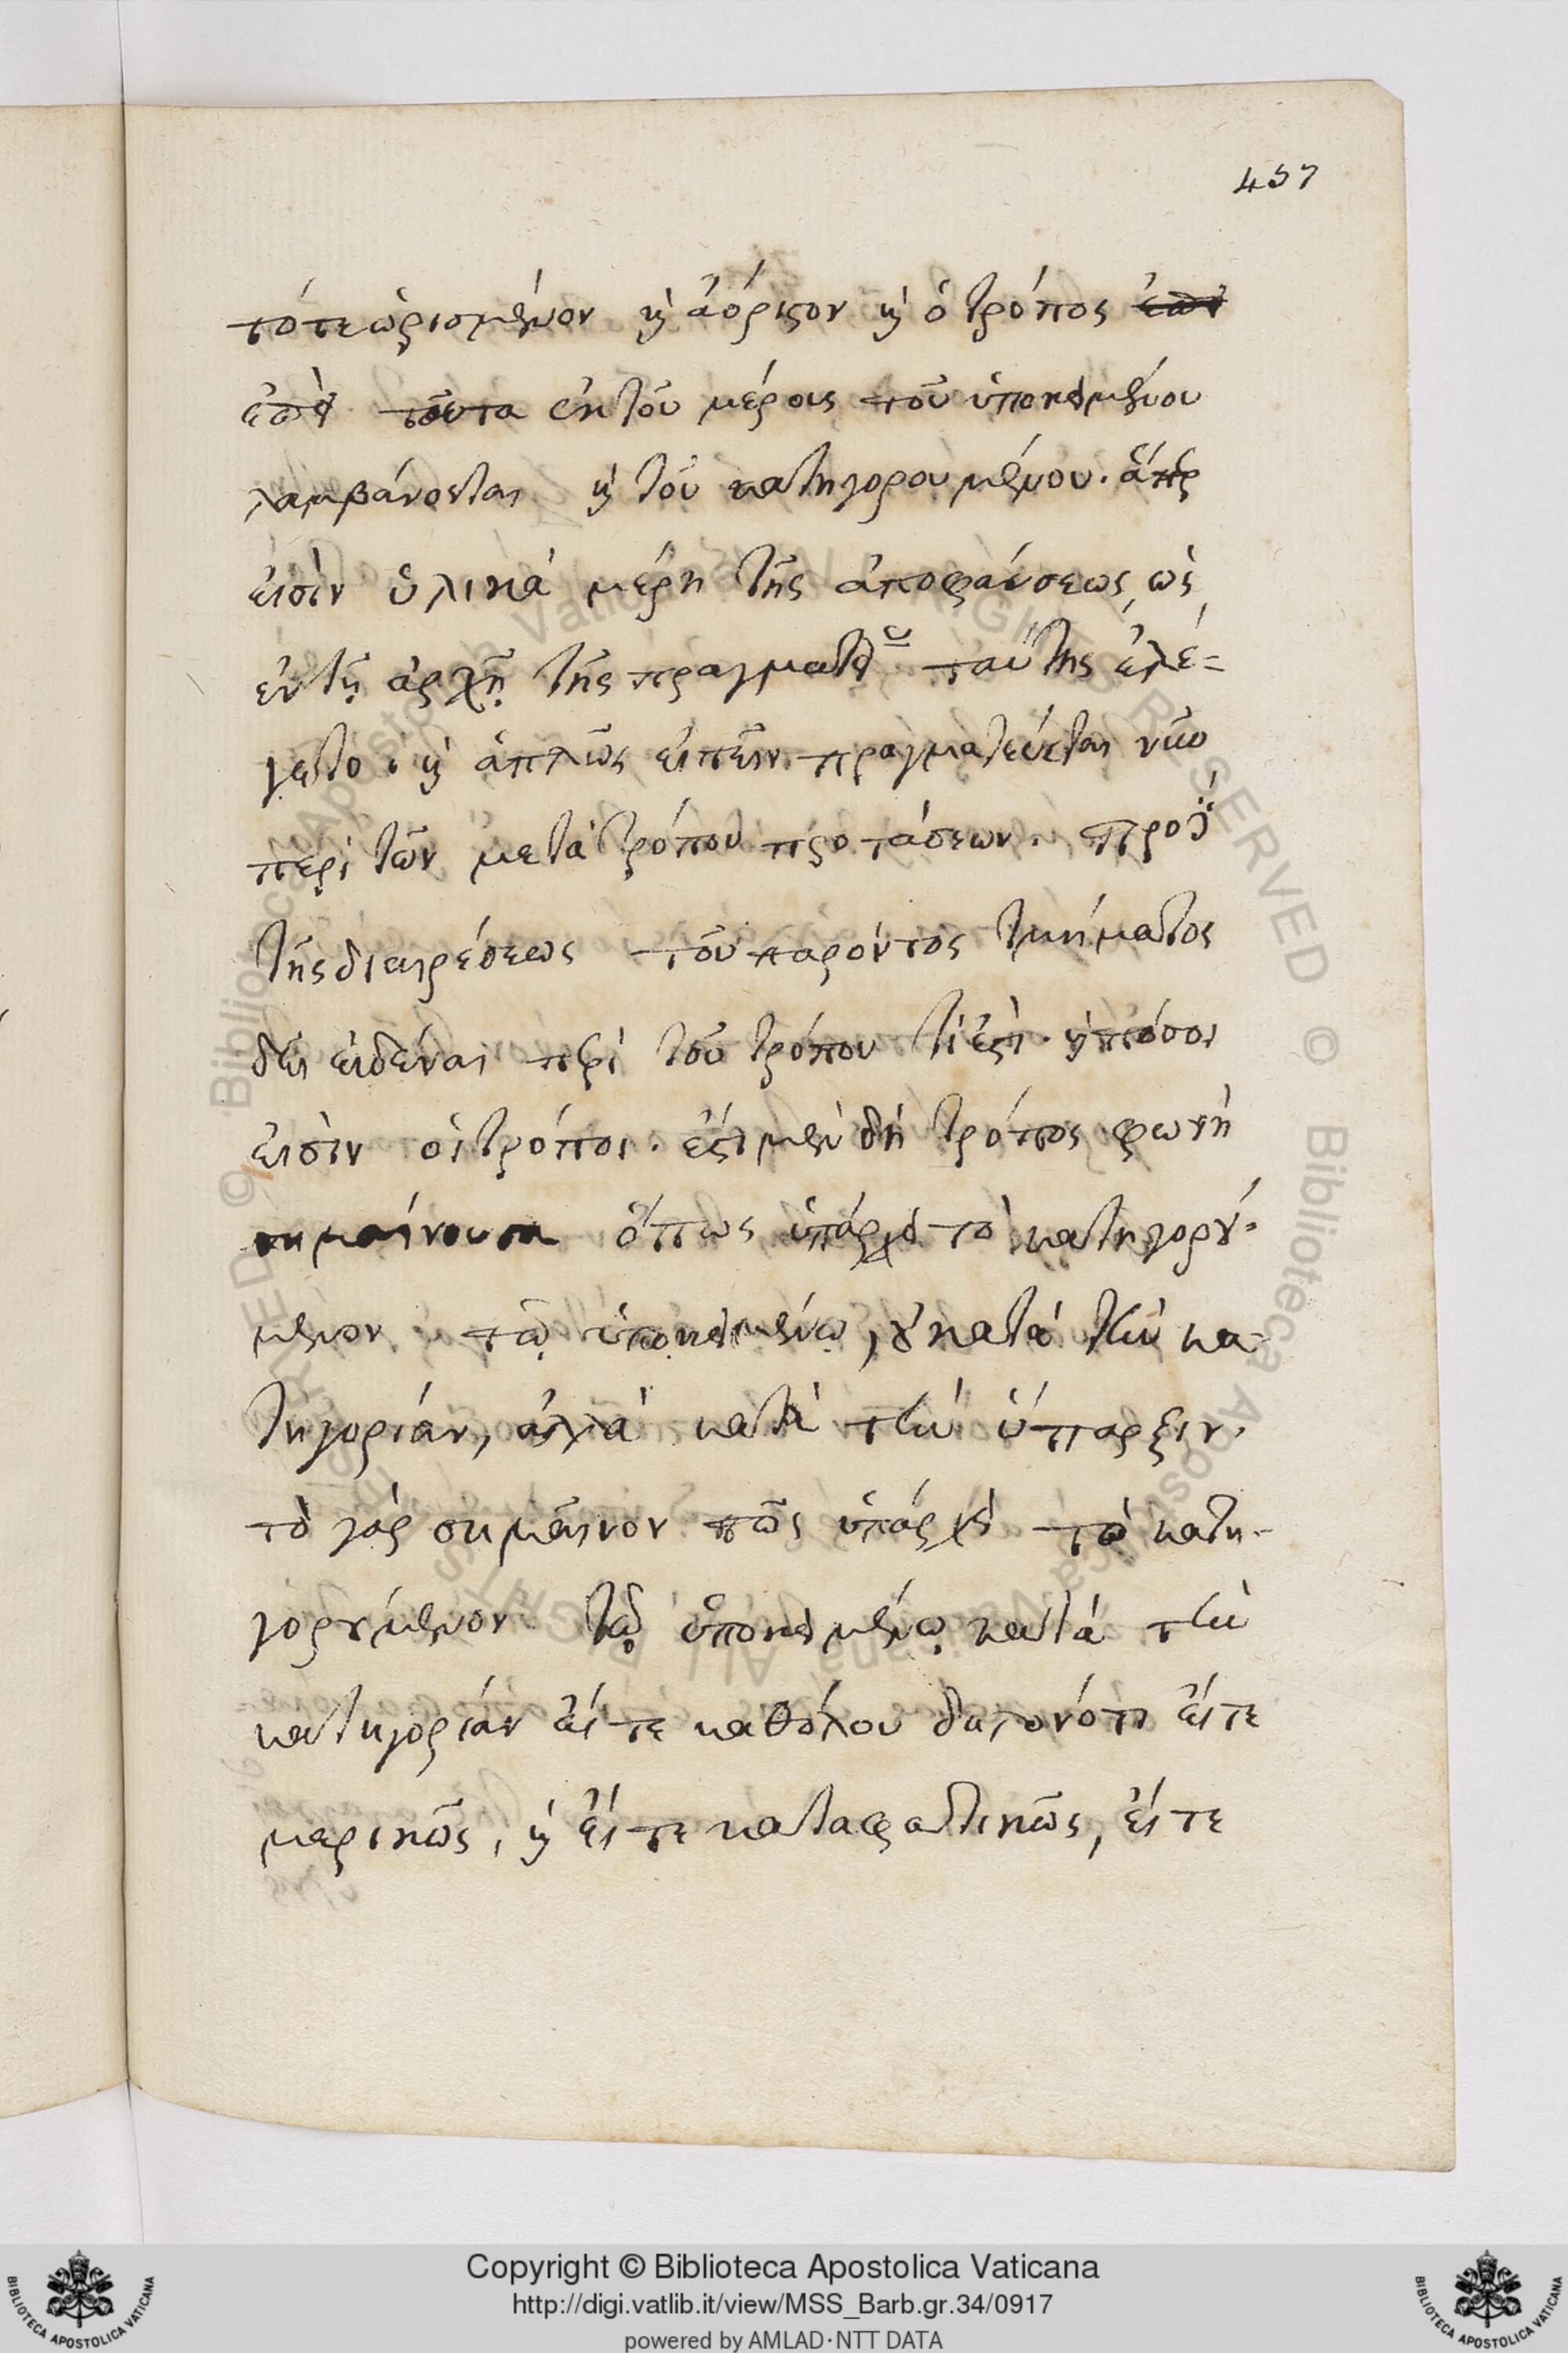 457
τό τε ὡρισμένον κ̀ ἀόριστον κ̀ ὁ τρόπος
ἐπεὶ ταῦτα ἐκ τοῦ μέρους τοῦ ὑποκειμένου
λαμβάνονται κ̀ τοῦ κατηγορουμένου. ἅπερ
εἰσὶν ὑλικὰ μέρη τῆς ἀποφάνσεως, ὡς
ἐν τῇ ἀρχῇ τῆς πραγματείας ταύτης ἐλέ=
γετο. κ̀ ἁπλῶς εἰπεῖν πραγματεύεται νῦν
περὶ τῶν μετὰ τρόπου προτάσεων. πρὸ
τῆς διαιρέσεως τοῦ παρόντος τμήματος
δεῖ εἰδέναι περὶ τοῦ τρόπου τί ἐστι. κ̀ πόσοι
εἰσὶν οἱ τρόποι. ἔστι μὲν δὴ τρόπος φωνὴ
σημαίνουσα ὅπως ὑπάρχει τὸ κατηγορού-
μενον τῷ ὑποκειμένῳ, οὐ κατὰ τὴν κα-
τηγορίαν, ἀλλὰ κατὰ τὴν ὕπαρξιν.
τὸ γὰρ σημαῖνον πῶς ὑπάρχει τὸ κατη-
γορούμενον τῷ ὑποκειμένῳ κατὰ τὴν
κατηγορίαν εἴτε καθόλου δηλονότι εἴτε
μερικῶς, κ̀ εἴτε καταφατικῶς, εἴτε
Copyright © Biblioteca Apostolica Vaticana
http://digi.vatlib.it/view/MSS_Barb.gr.34/0917
powered by AMLAD·NTT DATA